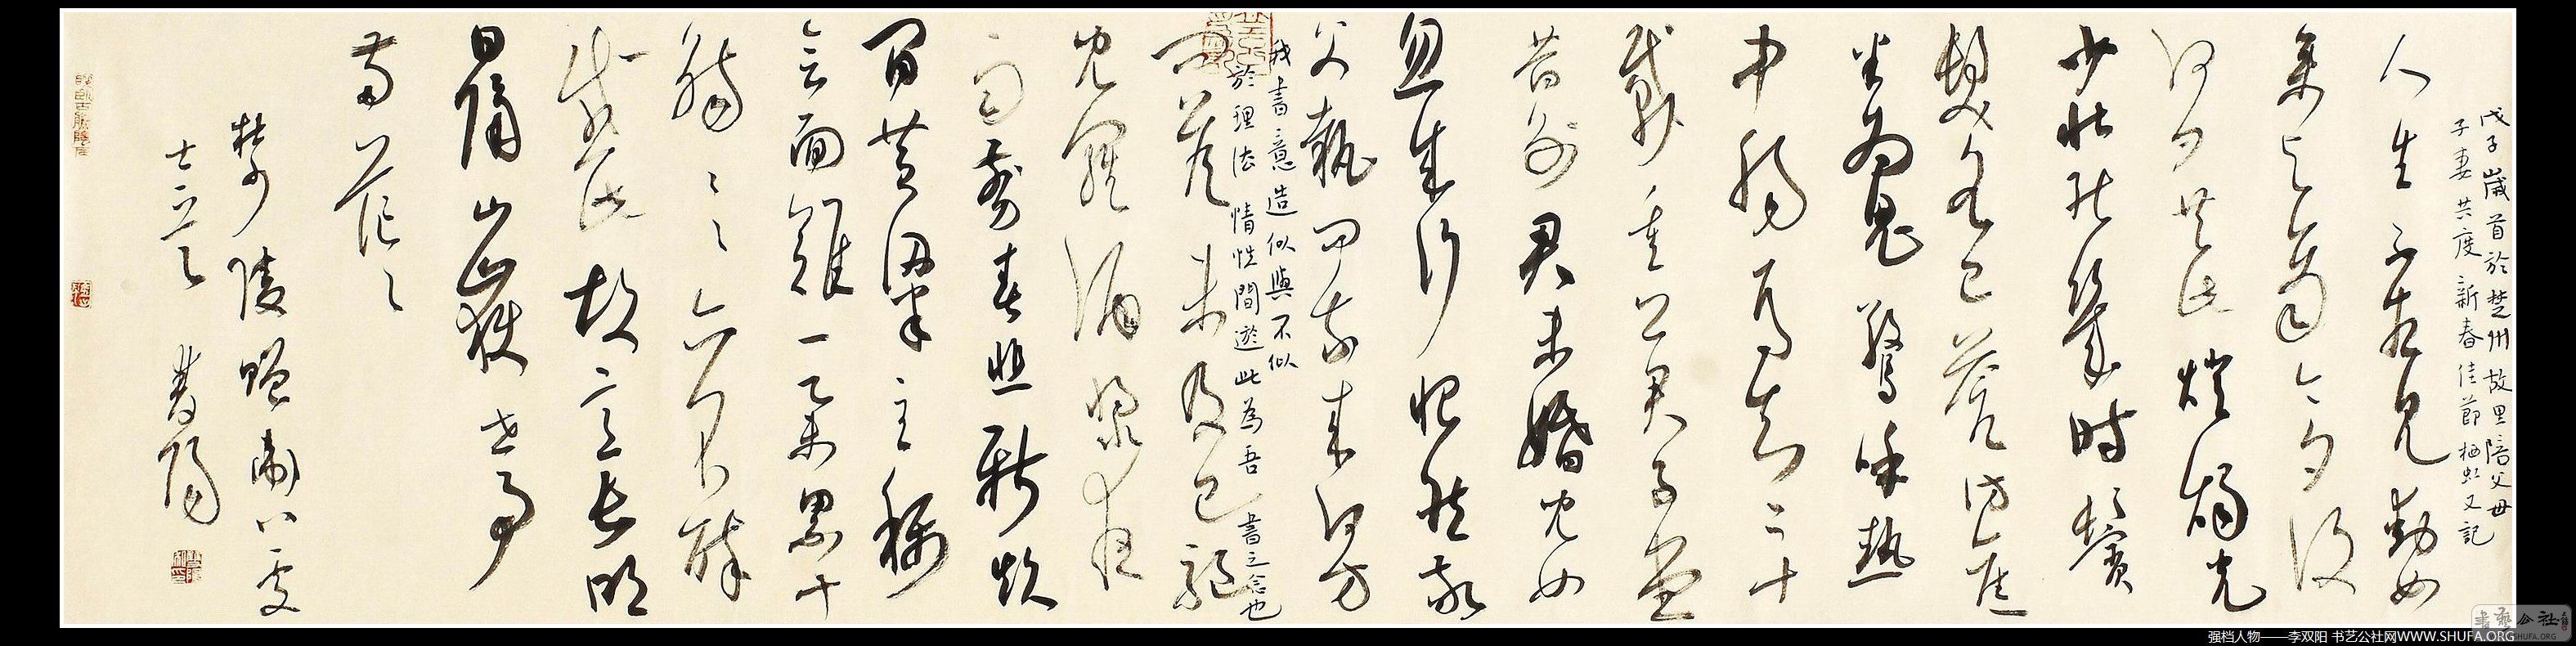 戊子歲首於楚州故里陪父母
子妻共度新春佳節栖虹又記
人生不相見動如
參與商今夕復
何夕共此燈燭光
少壯能幾時鬢
髮各已蒼訪舊
半為鬼驚呼熱
中腸焉知二十
載重上君子堂
昔別君未婚兒女
忽成行怡然敬
父執問我來何方
我書意造似與不似
於理法情性間遊此為吾書之念也
問答未及已驅
兒羅酒漿夜
雨剪春韭新炊
間黃粱主稱
會面難一舉累十
觴〻〻亦不醉
感此故意長明
日隔山嶽世事
兩茫〻
杜少陵贈衛八處
士 雙陽
强档人物——李双阳 书艺公社网WWW.SHUFA.ORG